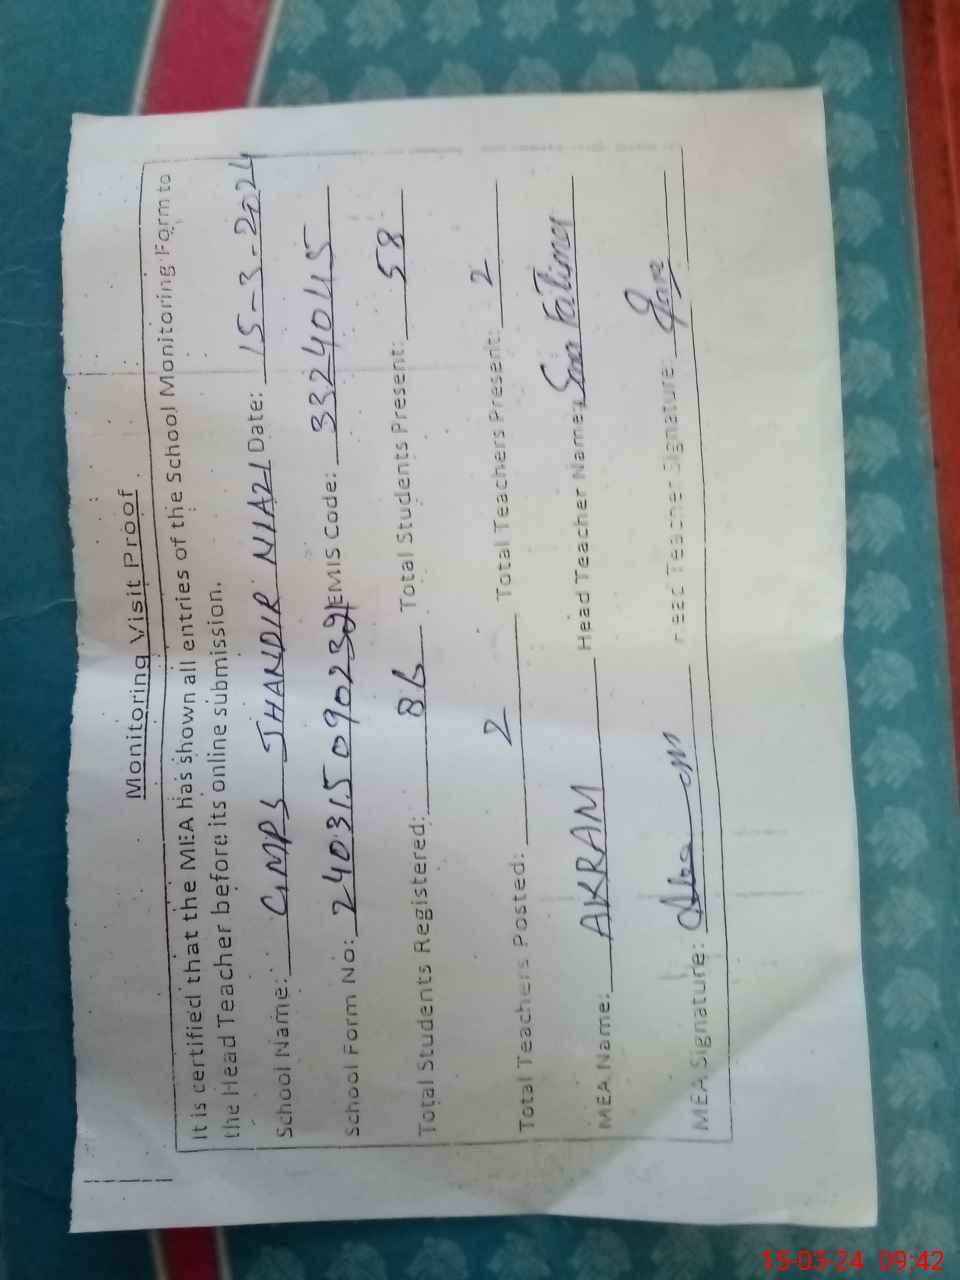 Monitoring Visit Proof
It is certified that the MEA has shown all entries of the School Monitoring Form to
the Head Teacher before its online submission.
School Name: GMPS JHANDIR NIAZI Date: 15-3-2024
School Form No: 24031509023 EMIS Code: 33240415
Total Students Registered: 86 Total Students Present: 58
Total Teachers Posted: 2 Total Teachers Present: 2
MEA Name: AKRAM Head Teacher Name: Fatima
MEA Signature: Head Teacher Signature:
15-03-24 09:42